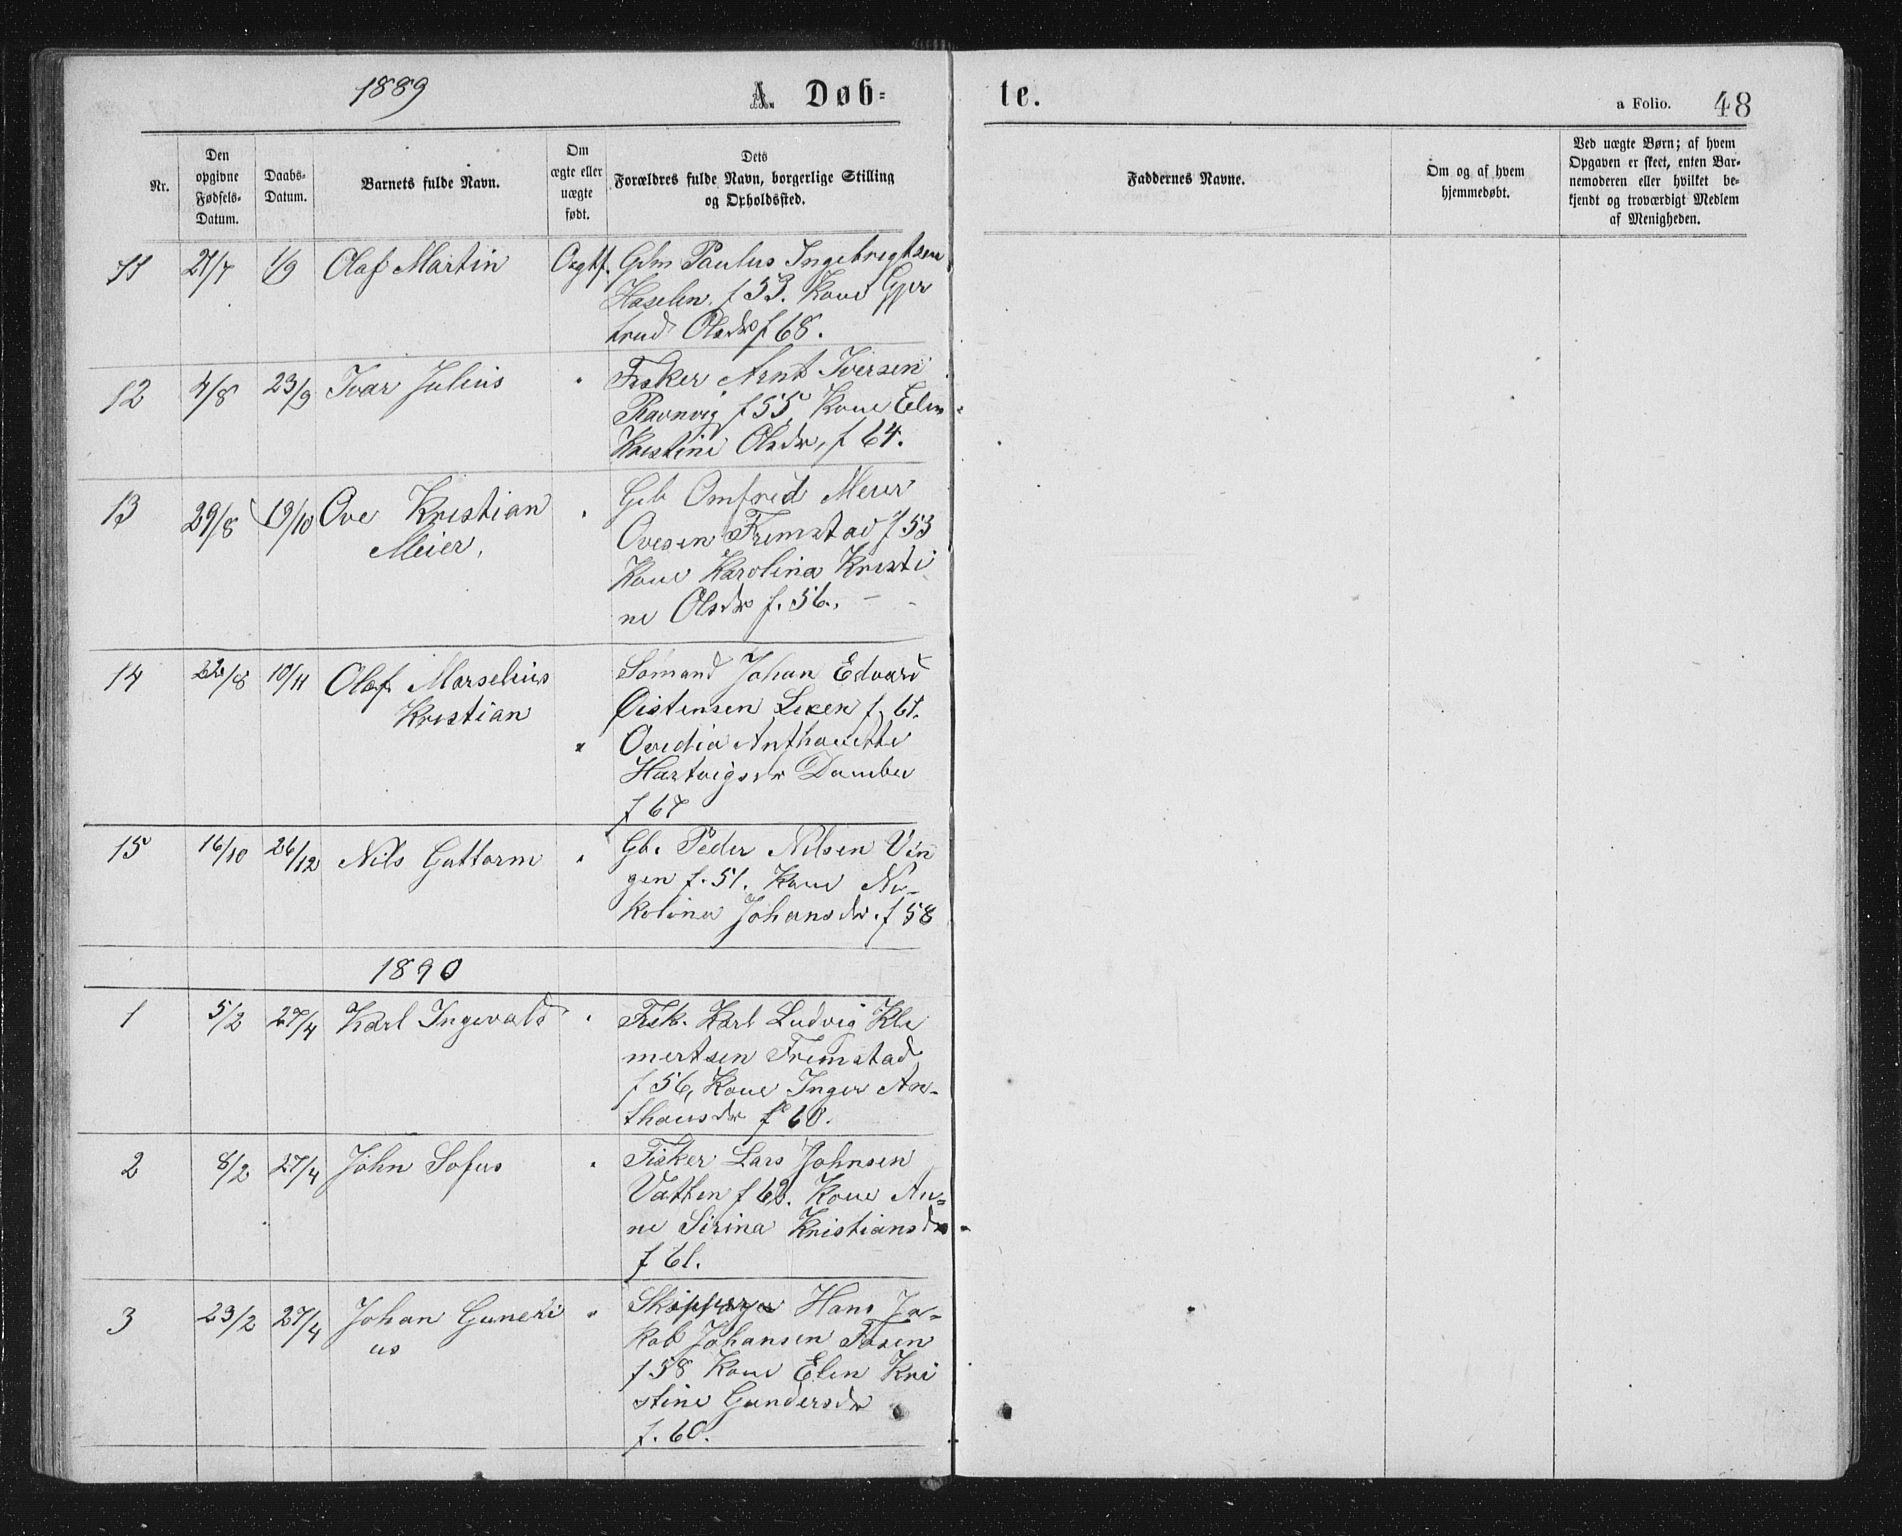 1889
A. Døb-
te.
a Folio. 48
Nr.
Den opgivne Fødsels-Datum.
Daabs-Datum.
Barnets fulde Navn.
Om ægte eller uægte født.
Dets Forældres fulde Navn, borgerlige Stilling og Opholdssted.
Faddernes Navne.
Om og af hvem hjemmedøbt.
Ved uægte Børn; af hvem Opgaven er skeet, enten Barnemoderen eller hvilket bekjendt og troværdigt Medlem af Menigheden.
11 21/7 1/9 Olaf Martin Paulus Ingebregtsen
f 53. Kone Gjer
trud Olsdr f 68.
12 4/8 23/9 Ivar Julius " Fisker Arnt Iversen
Ravnvig f 55, Kone Elen
Kristine Olsdr, f 64.
13 29/8 19/10 Ove Kristian " Gb Omfred Meier
Meier, Ovesen Fremstad f 53
Kone Karolina Kristi
ne Olsdr f. 56.
14 22/8 10/11 Olaf Marselius Sømand Johan Edvard
Kristian Øistensen f 61.
" Ovedia Anthonette
Hartvigsdr
f 67
15 16/10 26/12 Nils Guttorm " Gb. Peder Nilsen Vin
gen f. 51. Kone Ni-
kolina Johansdr. f 58
1890
1 5/2 27/4 Karl Ingevald " Fisk. Karl Ludvig Kle
mertsen Fremstad
f 56, Kone Inger An-
thonsdr f 60.
2 8/2 27/4 John Sofus " Fisker Lars Johnsen
Vatten f 62. Kone An-
ne Sirina Kristiansdr
f 61.
3 23/2 27/4 Johan Guneri " Skipper Hans Ja-
us kob Johansen Fosen
f 58 Kone Elen Kri
stine Gundersdr
f. 60.